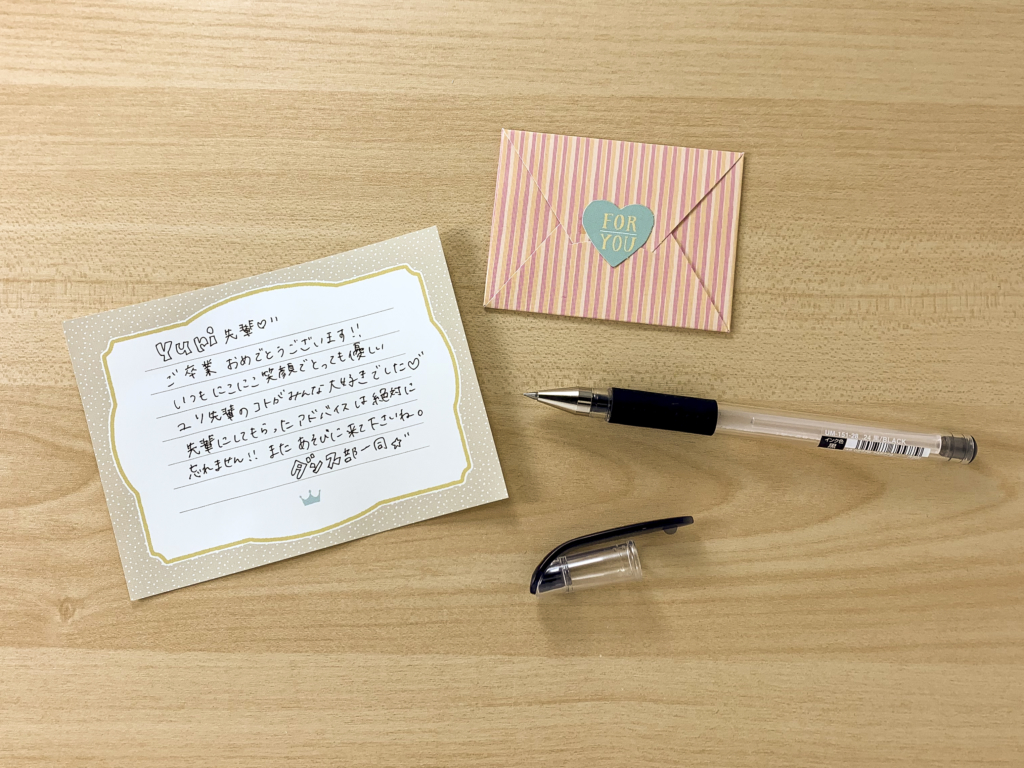 Yuri先輩♡
ご卒業 おめでとうございます!!
いつも にこにこ 笑顔で とっても 優しい
ユリ先輩の コトが みんな 大好き でした♡
先輩に してもらった アドバイスは 絶対に
忘れません!! また あそびに 来て下さいね。
ダンス部一同☆
FOR
YOU
インク色
黒